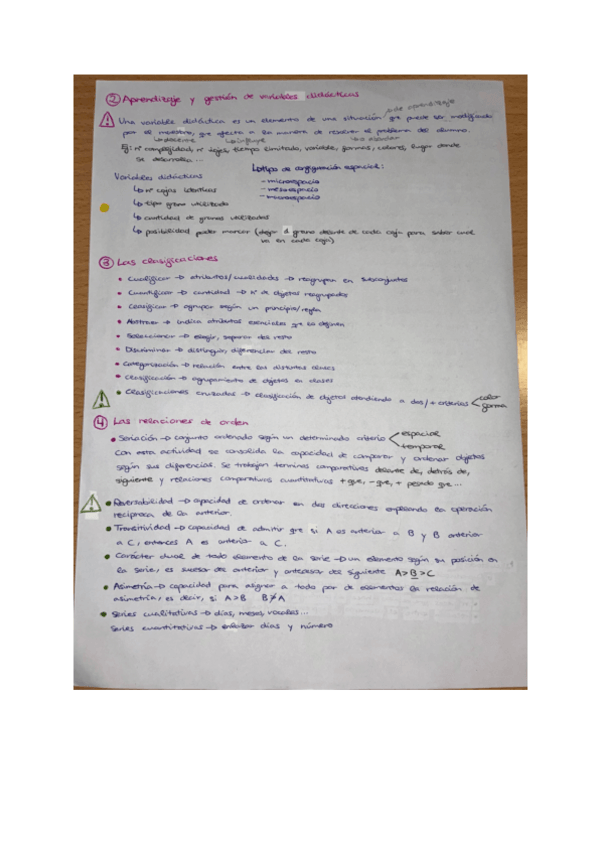 ② Aprendizaje y gestión de variables didácticas
de aprendizaje
Una variable didáctica es un elemento de una situación que puede ser modificada
por el maestro, que afecta a la manera de resolver el problema del alumno.
Ej: nº complejidad, nº cajas, tiempo limitado, variable, formas, colores, lugar donde
se desarrolla...
Variables didácticas
↳ tipo de configuración espacial:
- microespacio
- mesoespacio
- macroespacio
↳ nº cajas idénticas
↳ tipo grano utilizado
↳ cantidad de granos utilizados
↳ posibilidad poder marcar (dejar el grano delante de cada caja para saber cual
va en cada caja)
③ Las clasificaciones
• Cualificar → atributos/cualidades → reagrupan en subconjuntos
• Cuantificar → cantidad → nº de objetos reagrupados
• Clasificar → agrupar según un principio/regla
• Abstraer → indica atributos esenciales que la definen
• Seleccionar → elegir, separar del resto
• Discriminar → distinguir, diferenciar del resto
• Categorización → relación entre las distintas clases
• Clasificación → agrupamiento de objetos en clases
• Clasificaciones cruzadas → clasificación de objetos atendiendo a dos/+ criterios < color
forma
④ Las relaciones de orden
• Seriación → conjunto ordenado según un determinado criterio < espacial
temporal
Con esta actividad se consolida la capacidad de comparar y ordenar objetos
según sus diferencias. Se trabajan terminos comparativos delante de, detrás de,
siguiente y relaciones comparativas cuantitativas + que, - que, + pesado que...
• Reversabilidad → capacidad de ordenar en dos direcciones empleando la operación
recíproca de la anterior.
• Transitividad → capacidad de admitir que si A es anterior a B y B anterior
a C, entonces A es anterior a C.
• Carácter dual de todo elemento de la serie → un elemento según su posición en
la serie, es sucesor del anterior y antecesor del siguiente A > B > C
• Asimetría → capacidad para asignar a todo par de elementos la relación de
asimetría, es decir, si A > B B ≯ A
• Series cualitativas → días, meses, vocales...
Series cuantitativas → días y número